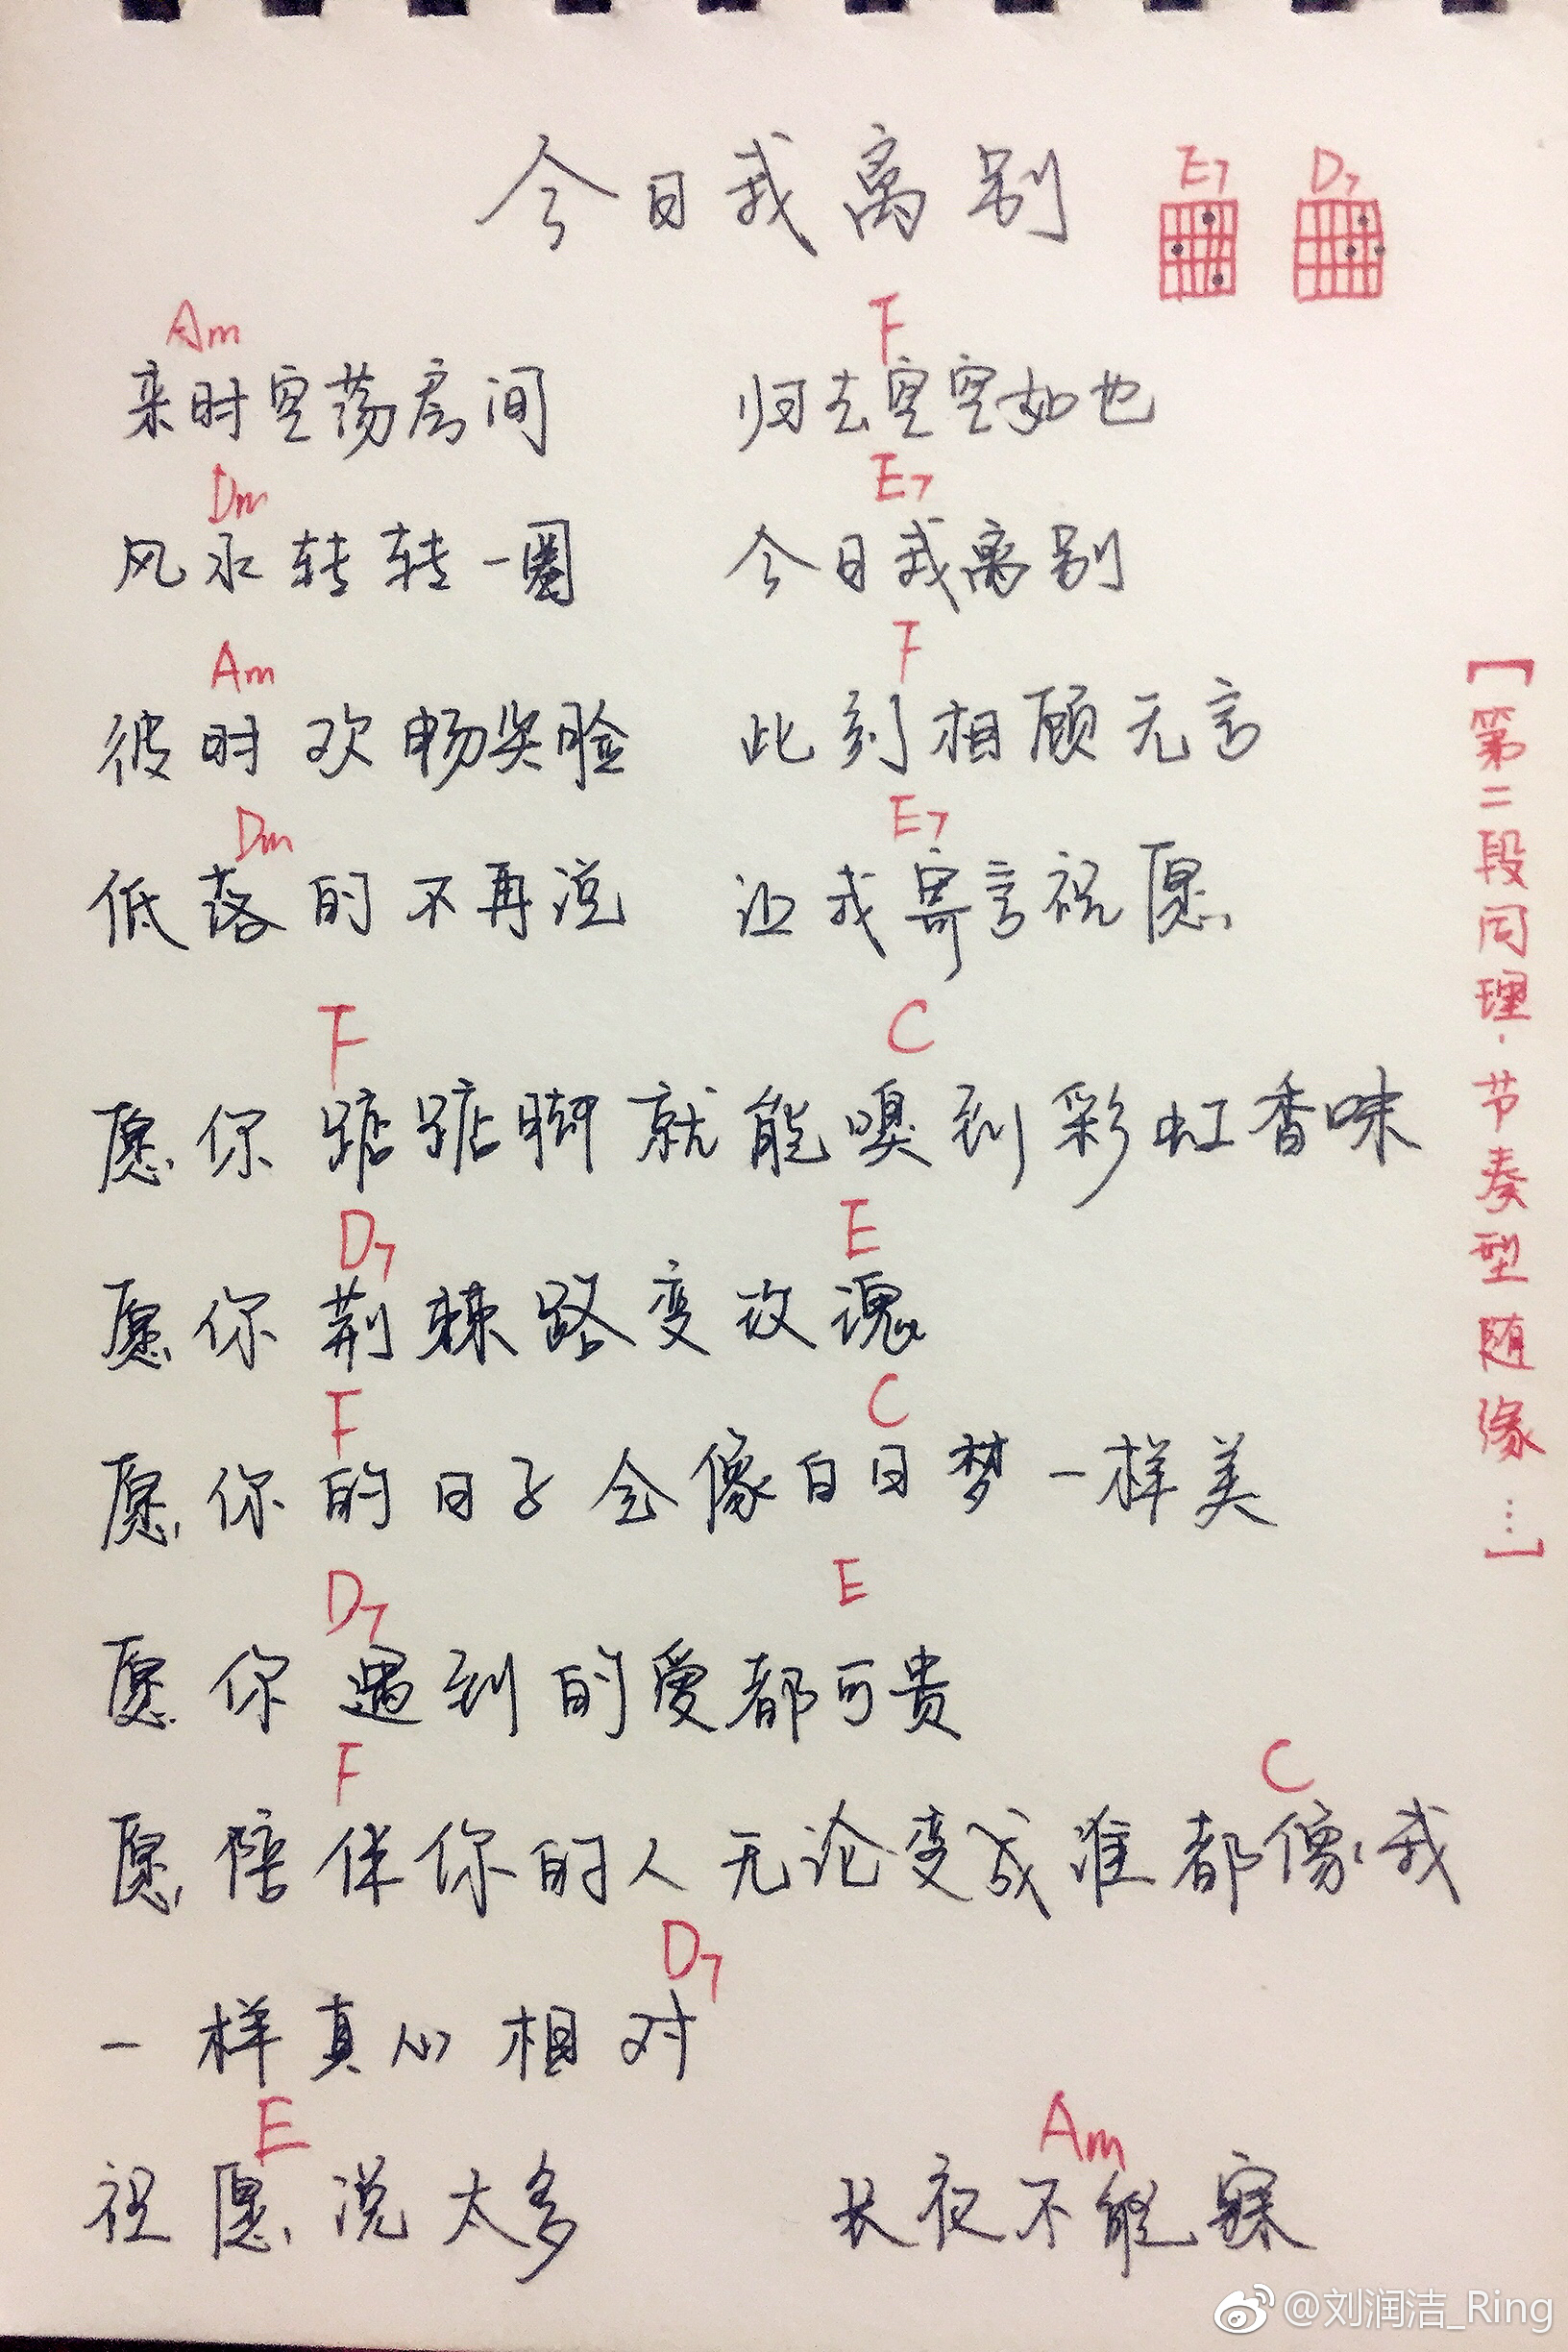 今日我离别
E7 D7
Am F
来时空荡房间 归去空空如也
Dm E7
风水转转一圈 今日我离别
Am F
彼时欢畅笑脸 此刻相顾无言
Dm E7
低落的不再说 让我寄言祝愿
F C
愿你踮踮脚就能嗅到彩虹香味
D7 E
愿你荆棘路变玫瑰
F C
愿你的日子会像白日梦一样美
D7 E
愿你遇到的爱都可贵
F C
愿陪伴你的人无论变成谁都像我
D7
一样真心相对
E Am
祝愿说太多 长夜不能寐
【第二段同理·节奏型随缘…】
@刘润洁_Ring